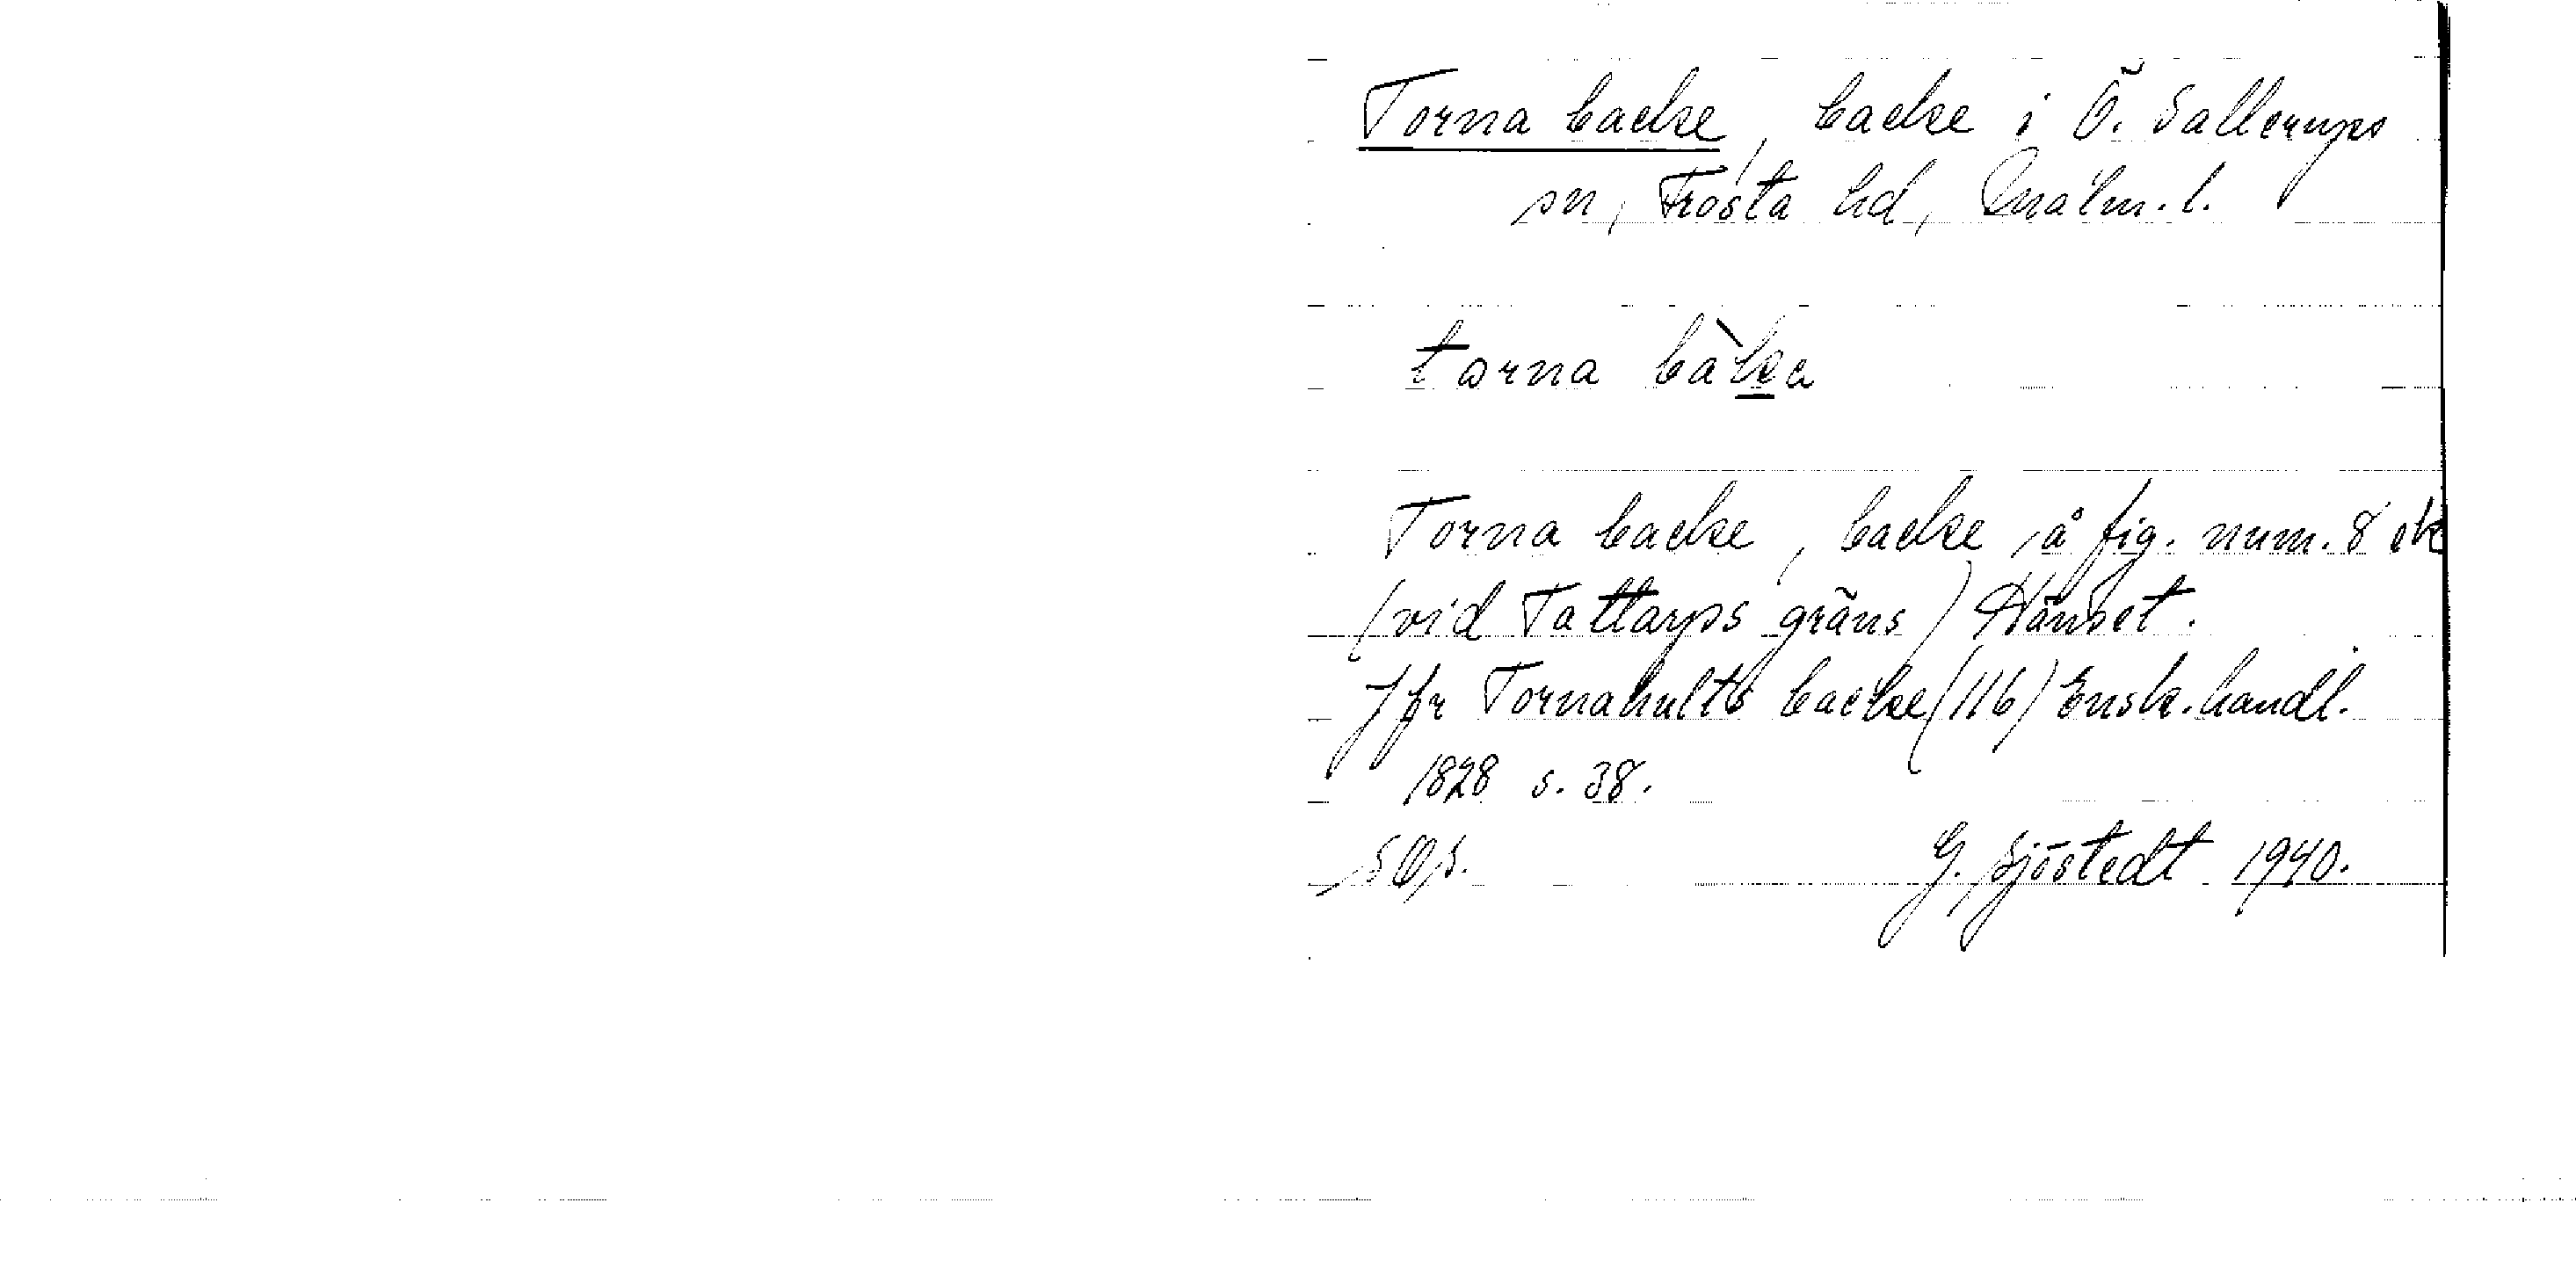 Torna backe, backe i Ö. Sallerups
sn, Frosta hd, Malm. l.
torna bàka
Torna backe, backe å fig. num. 8 ek
(vid Tattarps gräns)
Jfr Tornahults backe (116) Ensk. handl.
1828 s. 38.
G. Sjöstedt 1940.